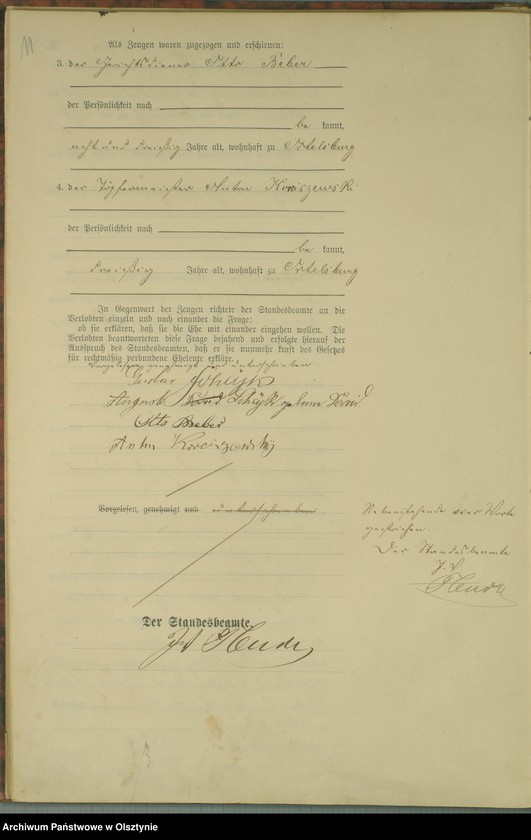 11
Als Zeugen waren zugezogen und erschienen:
3. der Gerichtsdiener Otto Bieber
der Persönlichkeit nach
be kannt,
acht und dreißig Jahre alt, wohnhaft zu Ortelsburg
4. der Töpfermeister Anton
der Persönlichkeit nach
be kannt,
dreißig Jahre alt, wohnhaft zu Ortelsburg
In Gegenwart der Zeugen richtete der Standesbeamte an die
Verlobten einzeln und nach einander die Frage:
ob sie erklären, daß sie die Ehe mit einander eingehen wollen. Die
Verlobten beantworteten diese Frage bejahend und erfolgte hierauf der
Ausspruch des Standesbeamten, daß er sie nunmehr kraft des Gesetzes
für rechtmäßig verbundene Eheleute erkläre.
Vorgelesen, genehmigt und unterschrieben
Gustav
geborene
Otto Bieber
Anton
Vorgelesen, genehmigt und unterschrieben
Nebenstehende vier Worte
gestrichen.
Der Standesbeamte
J. V.
Der Standesbeamte.
J. V.
Archiwum Państwowe w Olsztynie